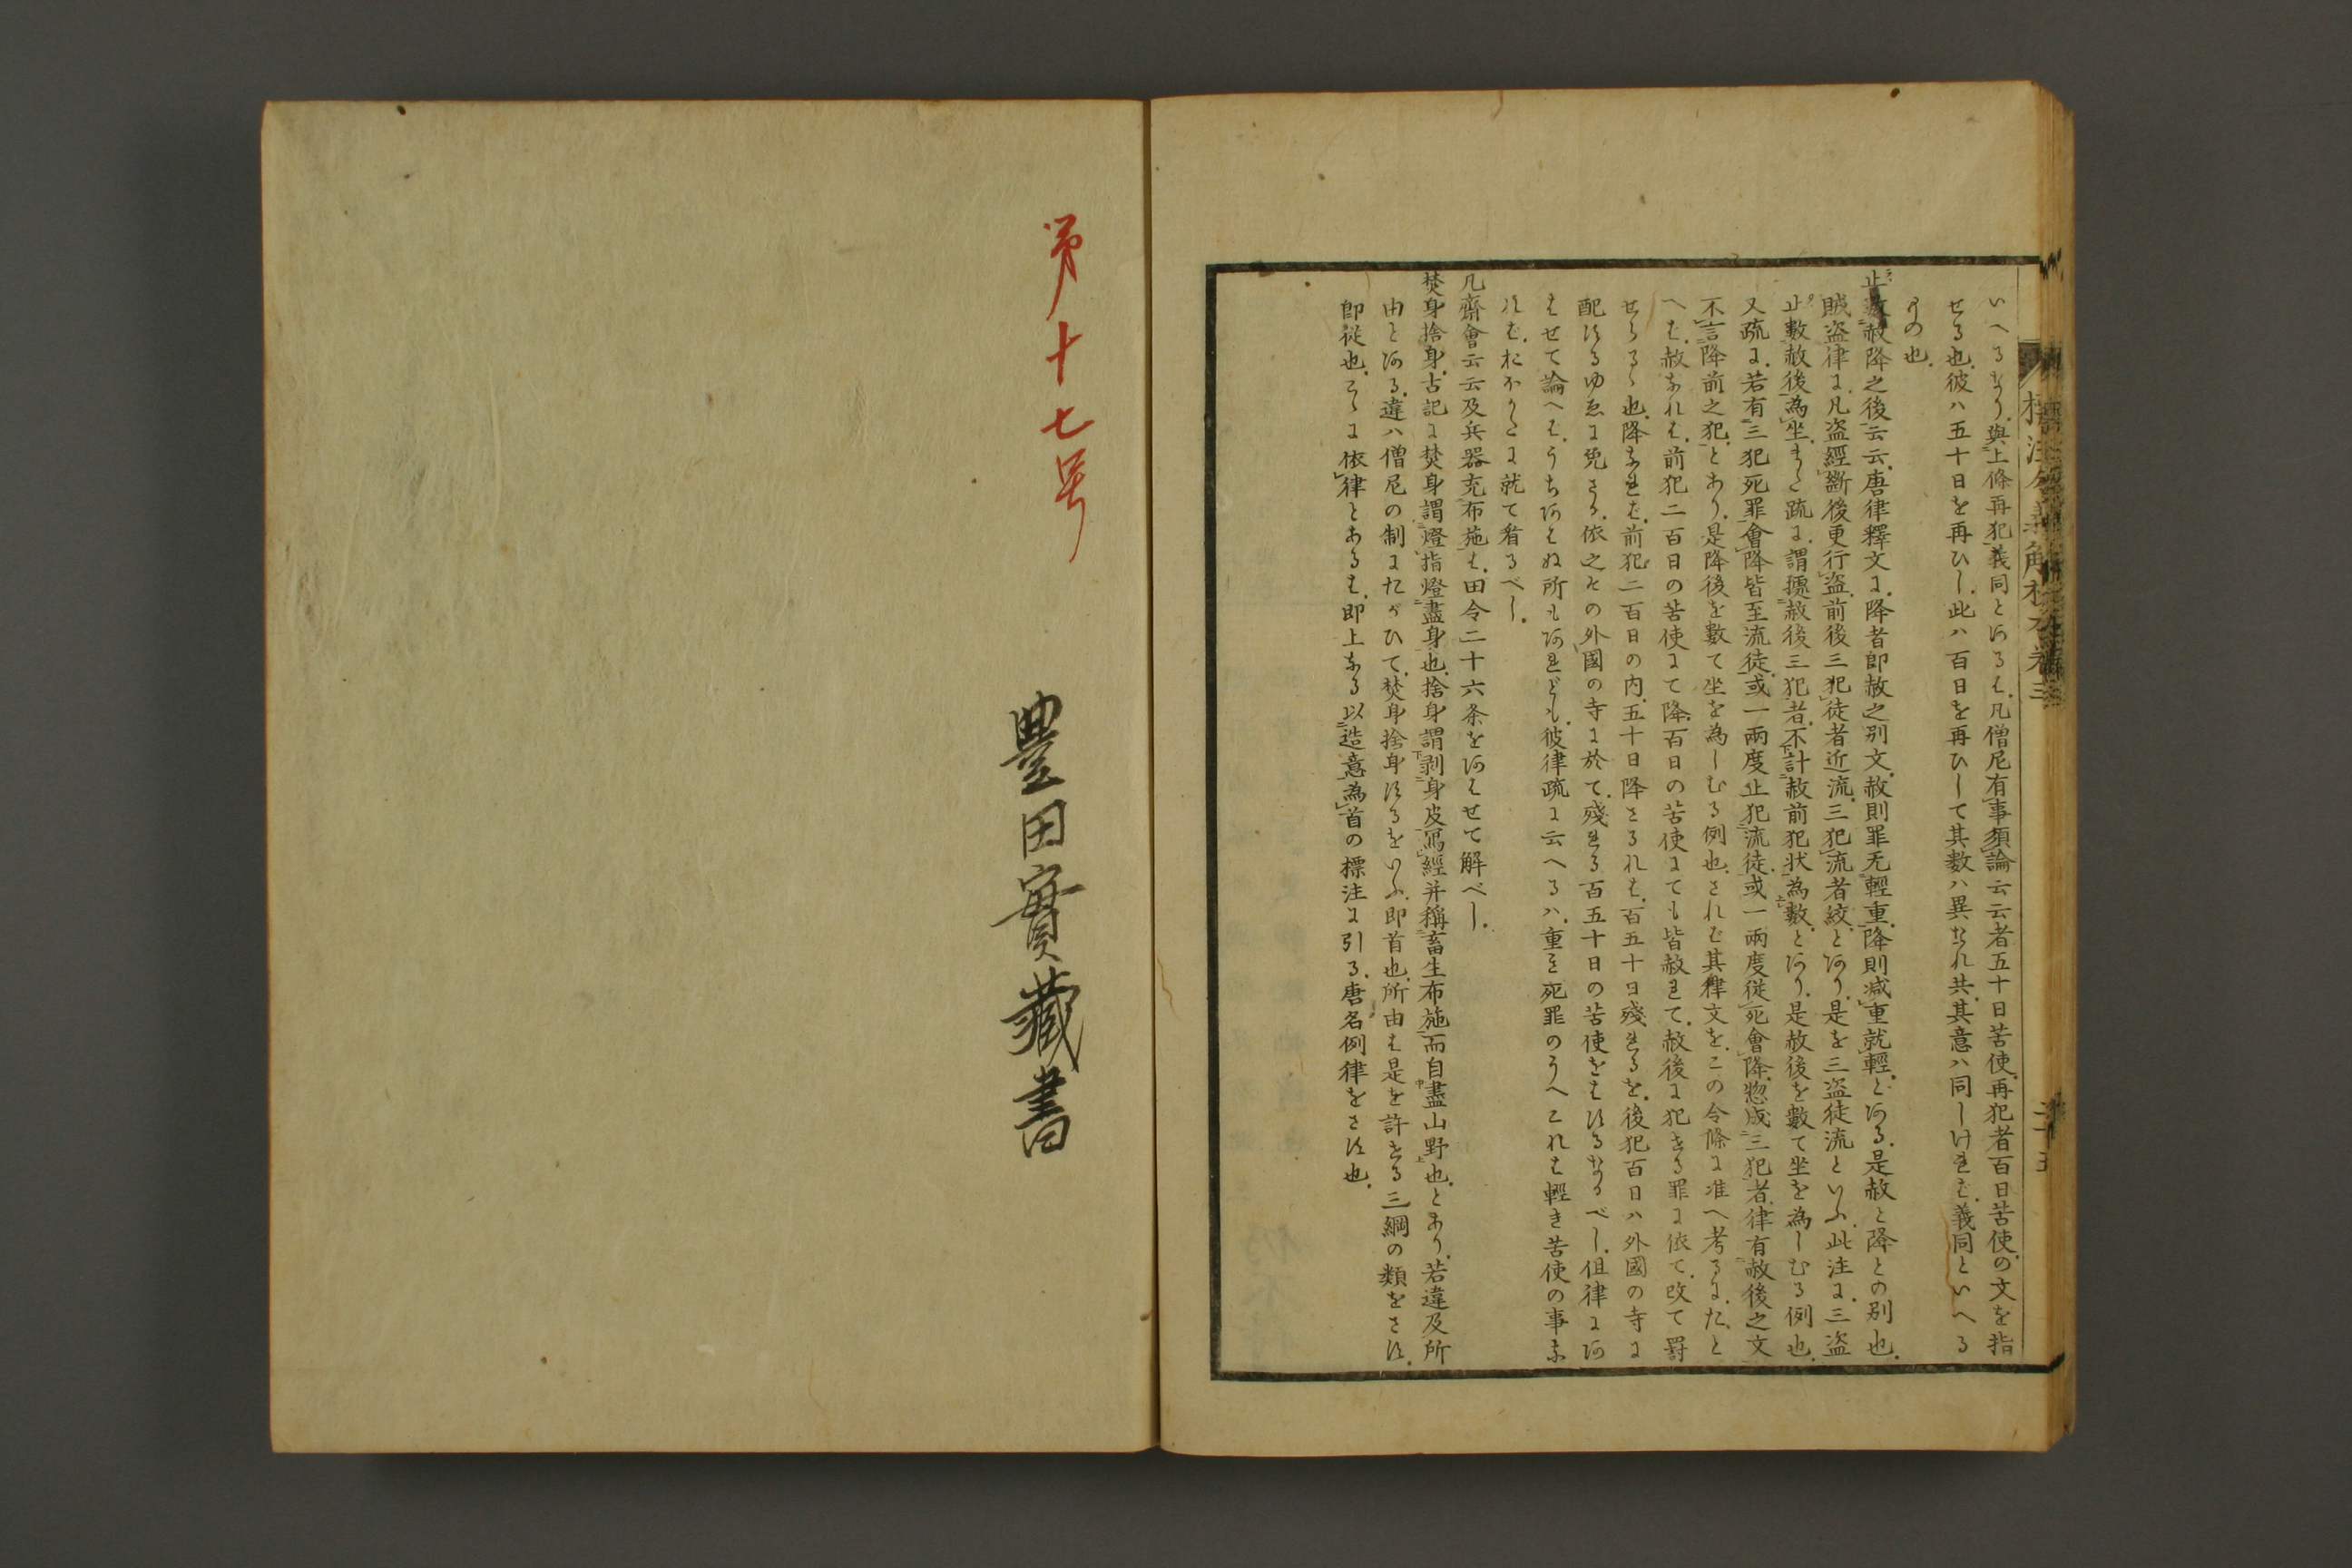 標注令義解校本卷三
いへるなり、與上條再犯義同とあるは、凡僧尼有事須論云云者五十日苦使、再犯者百日苦使の文を指
せる也、彼ハ五十日を再ひし、此ハ百日を再ひして其數ハ異なれ共、其意ハ同しけれは、義同といへる
もの也、
止數赦降之後云云、唐律釋文に、降者即赦之別文、赦則罪无輕重、降則减重就輕、とある、是赦と降との別也、
賊盗律に、凡盗經斷後更行盗、前後三犯徒者近流、三犯流者絞、とあり、是を三盗徒流といふ、此注に、三盗
止數赦後為坐、また疏に、謂據赦後三犯者、不計赦前犯状為數、とあり、是赦後を數て坐を為しむる例也、
又疏に、若有三犯死罪會降皆至流徒、或一兩度止犯流徒、或一兩度從死會降、惣成三犯者、律有赦後之文、
不言降前之犯、とあり、是降後を數て坐を為しむる例也、されは其律文を、この令條に准へ考るに、たと
へは、赦あれは、前犯二百日の苦使にて降、百日の苦使にても皆赦れて、赦後に犯せる罪に依て、改て罸
せらるゝ也、降なれは、前犯二百日の内、五十日降さるれは、百五十日殘れるを、後犯百日ハ外國の寺に
配するゆゑに免さる、依之その外國の寺に於て、殘れる百五十日の苦使をはするなるべし、但律にあ
はせて論へは、うちあはぬ所もあれども、彼律疏に云へるハ、重き死罪のうへこれは輕き苦使の事な
れは、おほかたに就て看るべし、
凡齋會云云及兵器充布施は、田令二十六条をあはせて解べし、
焚身捨身、古記に焚身謂燈指燈盡身也、捨身謂剥身皮寫經并稱畜生布施而自盡山野也、とあり、若違及所
由とある、違ハ僧尼の制にたがひて、焚身捨身するをいふ、即首也、所由は是を許せる三綱の類をさす、
即從也、こゝに依律とあるは、即上なる以造意為首の標注に引る、唐名例律をさす也、
二十五
第十七号
豊田實藏書